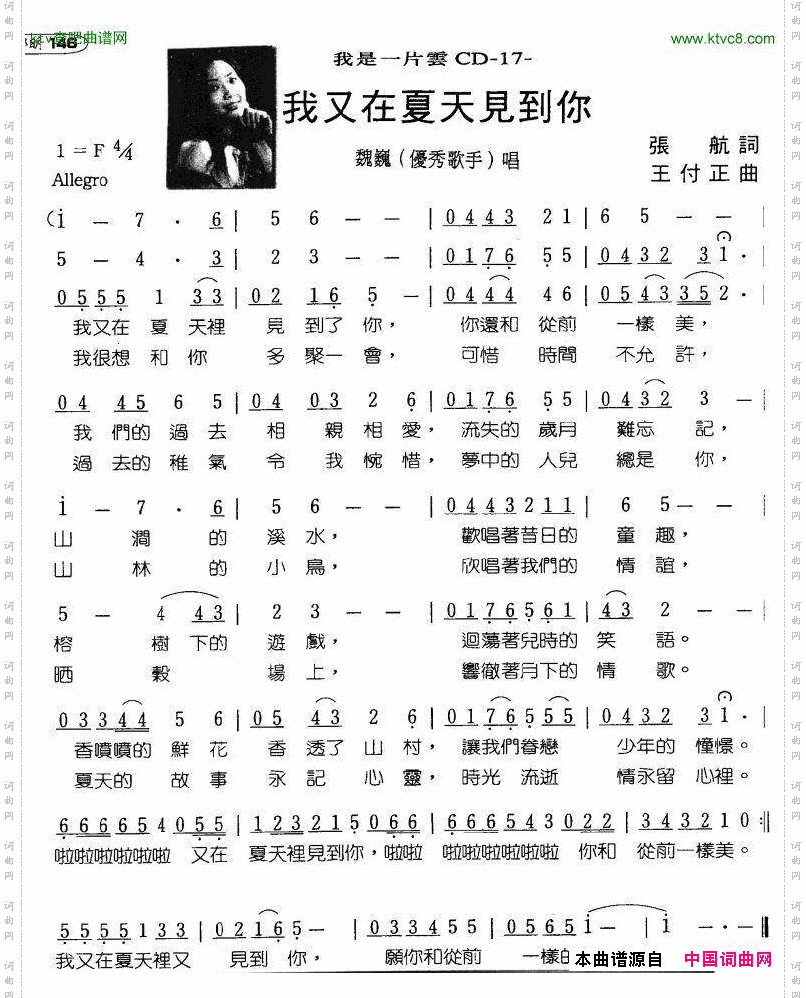 ktv香吧曲谱网
146
www.ktvc8.com
我是一片雲 CD-17-
我又在夏天見到你
1 = F 4/4
Allegro
魏巍(優秀歌手)唱
張 航詞
王付正曲
(i — 7 · 6 | 5 6 — — | 0 4 4 3 2 1 | 6 5 — — |
5 — 4 · 3 | 2 3 — — | 0 1 7 6 5 5 | 0 4 3 2 3 1 · |
0 5 5 5 1 3 3 | 0 2 1 6 5 — | 0 4 4 4 4 6 | 0 5 4 3 3 5 2 · |
我又在 夏 天裡 見 到了 你, 你還和 從前 一樣 美,
我很想 和 你 多 聚一 會, 可惜 時間 不允 許,
0 4 4 5 6 5 | 0 4 0 3 2 6 | 0 1 7 6 5 5 | 0 4 3 2 3 — |
我 們的 過 去 相 親 相 愛, 流失的 歲月 難忘 記,
過 去的 稚 氣 令 我 惋 惜, 夢中的 人兒 總是 你,
i — 7 · 6 | 5 6 — — | 0 4 4 3 2 1 1 | 6 5 — — |
山 澗 的 溪 水, 歡唱著昔日的 童 趣,
山 林 的 小 鳥, 欣唱著我們的 情 誼,
5 — 4 4 3 | 2 3 — — | 0 1 7 6 5 6 1 | 4 3 2 — — |
榕 樹 下的 遊 戲, 迴蕩著兒時的 笑 語。
晒 穀 場 上, 響徹著月下的 情 歌。
0 3 3 4 4 5 6 | 0 5 4 3 2 6 | 0 1 7 6 5 5 5 | 0 4 3 2 3 1 · |
香噴噴的 鮮 花 香 透了 山 村, 讓我們眷戀 少年的 憧憬。
夏天的 故 事 永 記 心 靈, 時光 流逝 情永留 心裡。
6 6 6 6 5 4 0 5 5 | 1 2 3 2 1 5 0 6 6 | 6 6 6 6 5 4 3 0 2 2 | 3 4 3 2 1 0 :||
啦啦啦啦啦啦 又在 夏天裡見到你,啦啦 啦啦啦啦啦啦 你和 從前一樣美。
5 5 5 5 1 3 3 | 0 2 1 6 5 — | 0 3 3 4 5 5 | 0 5 6 5 i — | i — · ||
我又在夏天裡又 見到 你, 願你和從前 一樣的
本曲谱源自 中国词曲网